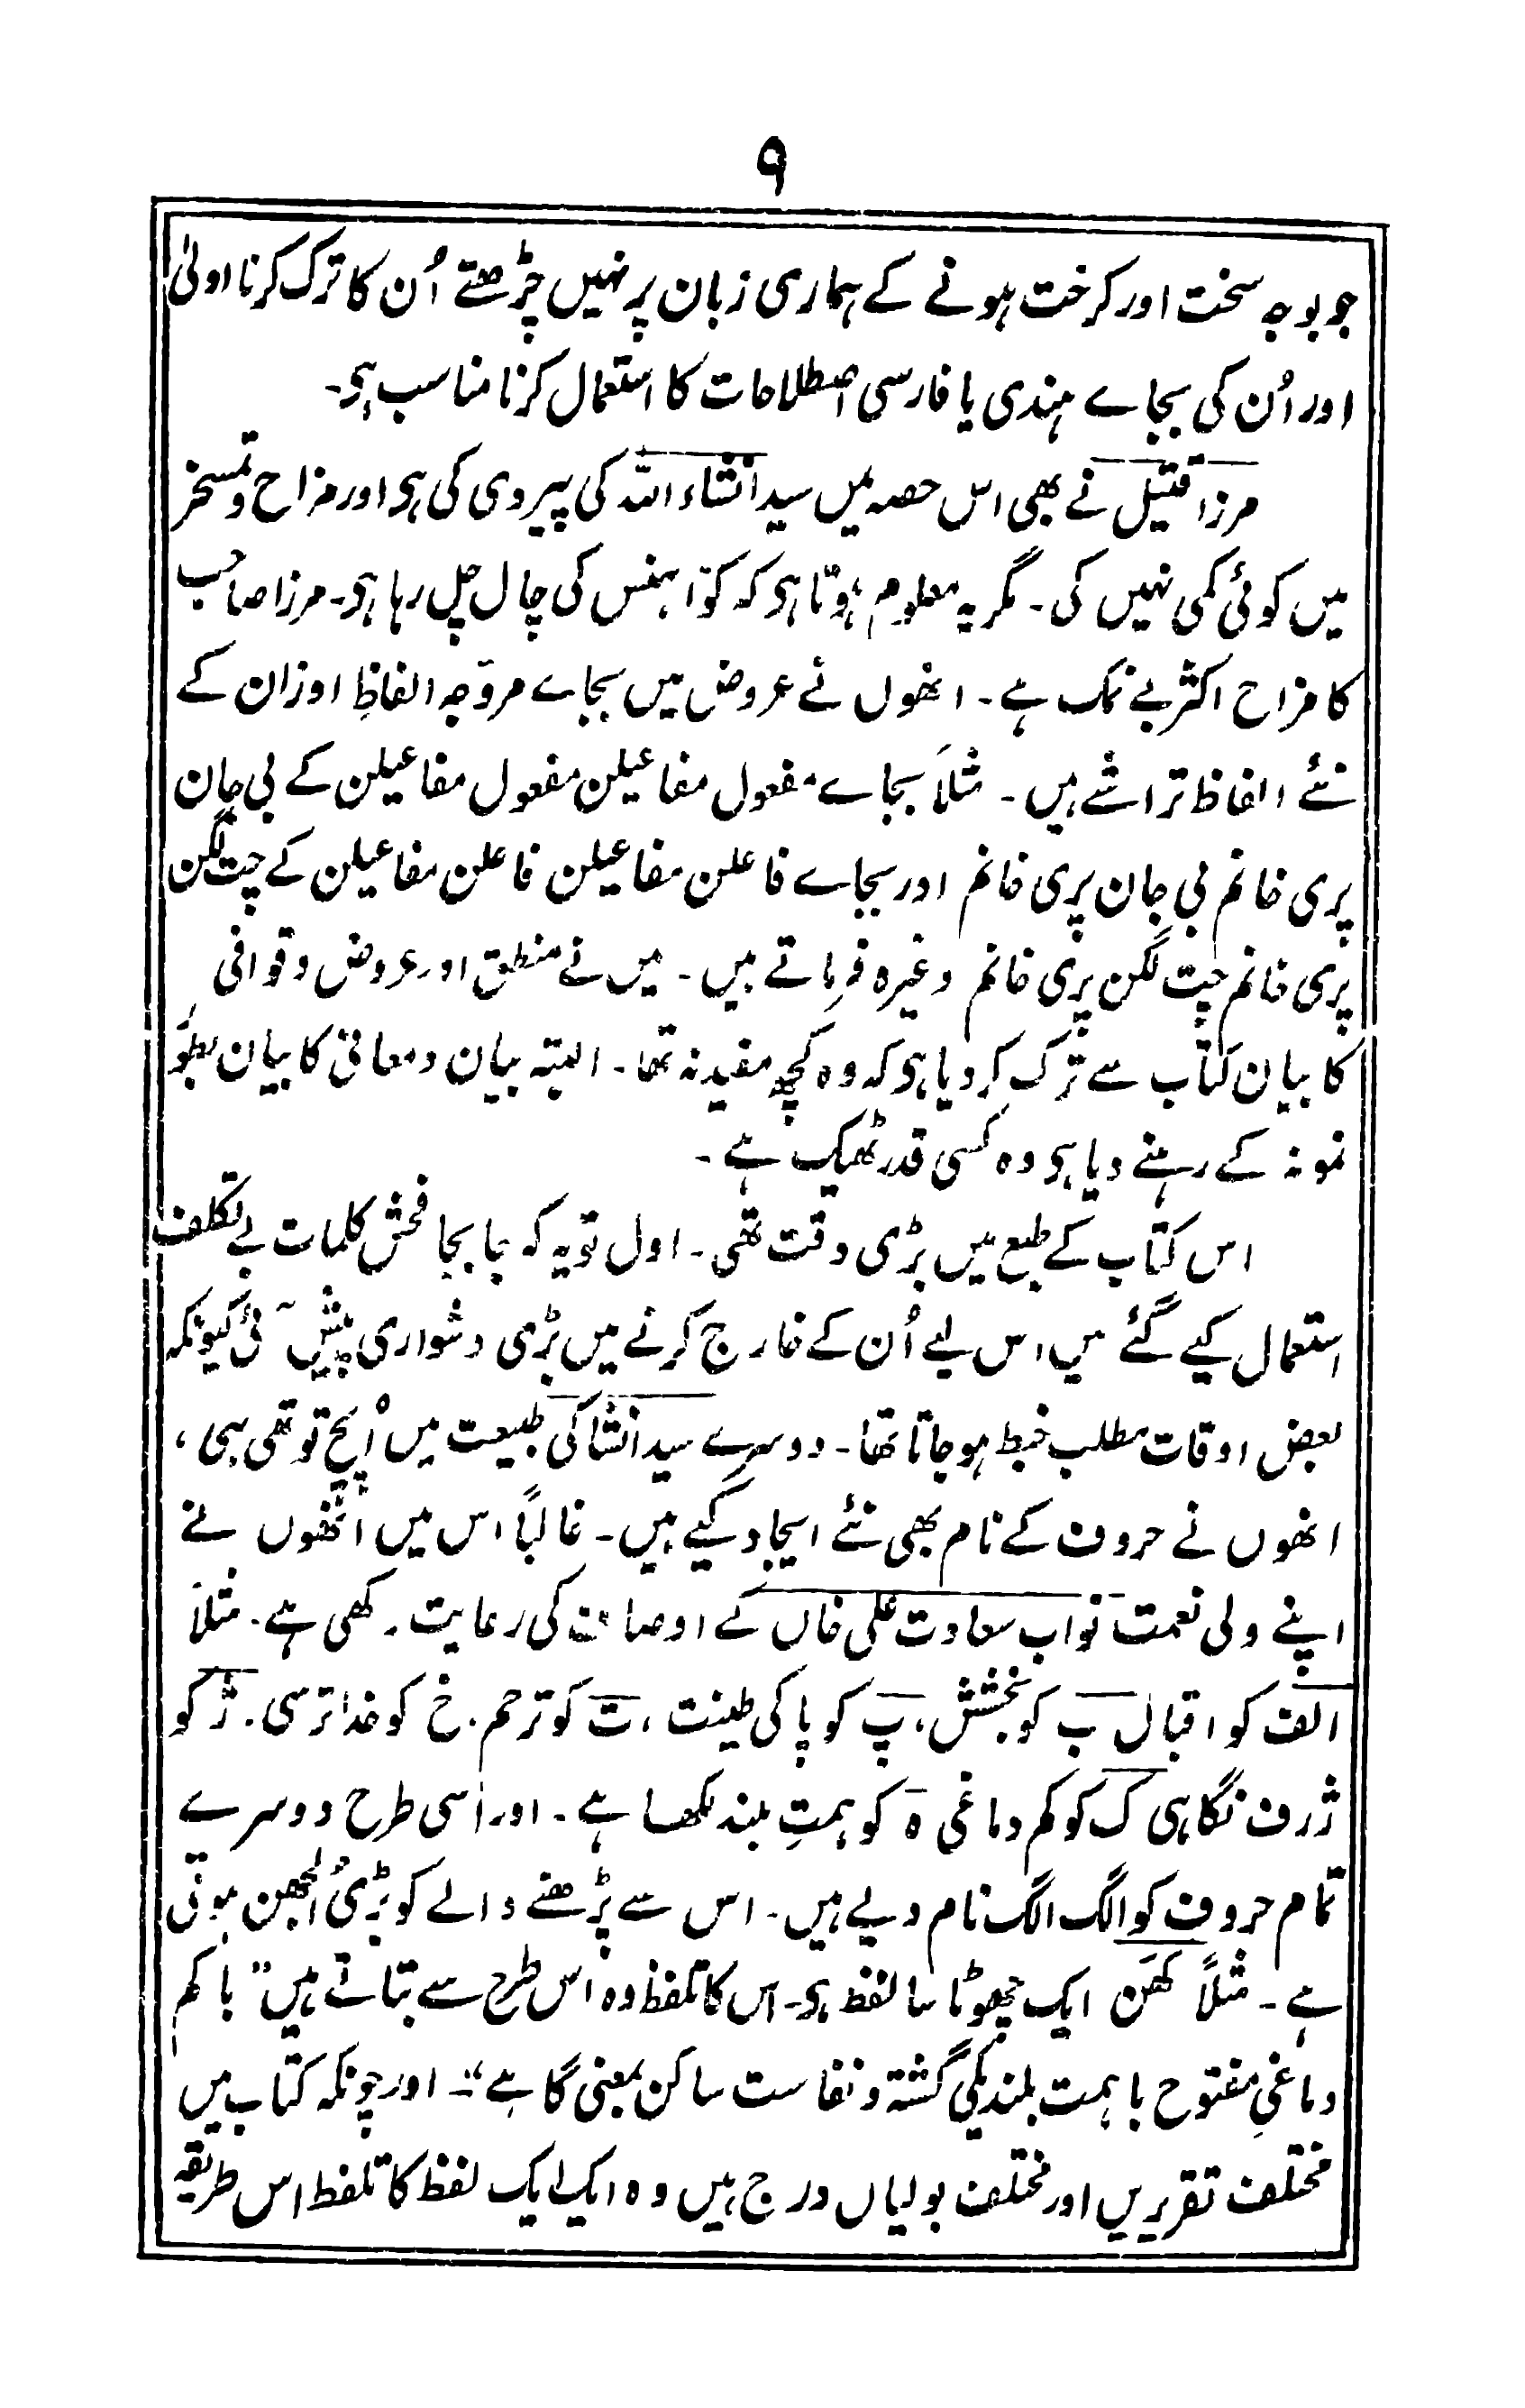 ۹
جو بوجہ سخت اور کرخت ہونے کے ہماری زبان پر نہیں چڑھتے اُن کا ترک کرنا اولیٰ
اور اُن کی بجاے ہندی یا فارسی اصطلاحات کا استعمال کرنا مناسب ہی۔
مرزا قتیل نے بھی اس حصہ میں سید انشاء اللہ کی پیروی کی ہی اور مزاح و تمسخر
میں کوئی کمی نہیں کی۔ مگر یہ معلوم ہوتا ہی کہ کوّا ہنس کی چال چل رہا ہی۔ مرزا صاحب
کا مزاح اکثر بے نمک ہے۔ انھوں نے عروض میں بجاے مروّجہ الفاظِ اوزان کے
نئے الفاظ تراشے ہیں۔ مثلاً بجاے مفعول مفاعیلن مفعول مفاعیلن کے بی جان
پری خانم بی جان پری خانم اور بجاے فاعلن مفاعیلن فاعلن مفاعیلن کے چت لگن
پری خانم چت لگن پری خانم وغیرہ فرماتے ہیں۔ میں نے منطق اور عروض و قوافی
کا بیان کتاب سے ترک کر دیا ہی کہ وہ کچھ مفید نہ تھا۔ البتہ بیان و معانی کا بیان بطور
نمونہ کے رہنے دیا ہی وہ کسی قدر ٹھیک ہے۔
اس کتاب کے طبع میں بڑی دقت تھی۔ اول تو یہ کہ جا بجا فحش کلمات بے تکلف
استعمال کیے گئے ہیں اس لیے اُن کے خارج کرنے میں بڑی دشواری پیش آئی کیونکہ
بعض اوقات مطلب خبط ہو جاتا تھا۔ دوسرے سید انشا کی طبیعت میں اُپج تو تھی ہی،
انھوں نے حروف کے نام بھی نئے ایجاد کیے ہیں۔ غالباً اس میں اُنھوں نے
اپنے ولی نعمت نواب سعادت علی خاں کے اوصاف کی رعایت رکھی ہے۔ مثلاً
الف کو اقبال ب کو بخشش، پ کو پاکی طینت، ت کو ترحم۔ خ کو خدا ترسی۔ ژ کو
ژرف نگاہی ک کو کم دماغی ہ کو ہمتِ بلند لکھا ہے۔ اور اسی طرح دوسرے
تمام حروف کو الگ الگ نام دیے ہیں۔ اس سے پڑھنے والے کو بڑی اُلجھن ہوتی
ہے۔ مثلاً کھَن ایک چھوٹا سا لفظ ہی۔ اس کا تلفظ وہ اس طرح سے بتاتے ہیں ”با کم
دماغیِ مفتوح با ہمت بلند یکی گشتہ و نفاست ساکن بمعنی گاہے“۔ اور چونکہ کتاب میں
مختلف تقریریں اور مختلف بولیاں درج ہیں وہ ایک ایک لفظ کا تلفظ اس طریقہ